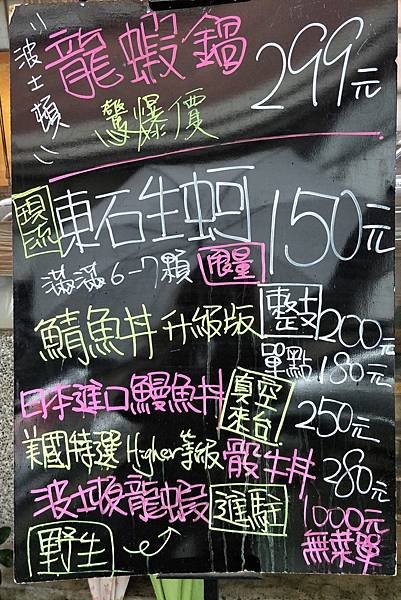 波士頓
龍蝦鍋 299元
驚爆價
東石生蚵 150元
滿滿6-7顆 限量
鯖魚丼 升級版 整支 200元
單點 180元
日本進口鰻魚丼 真空來台 250元
美國特選 Higher等級 骰牛丼 280元
波士頓龍蝦 進駐 1000元
野生 無菜單